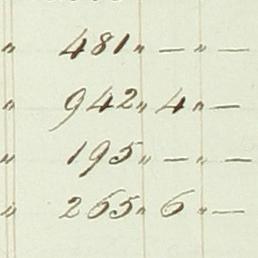 " 481 " — " —
" 942 " 4 " —
" 195 " — " —
" 265 " 6 " —